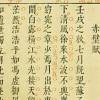 赤壁賦
壬戌之秋七月既望
下清風徐來水波不興
窈窕之章少焉月出
間白露橫江水光接天
茫然浩浩乎如馮虛